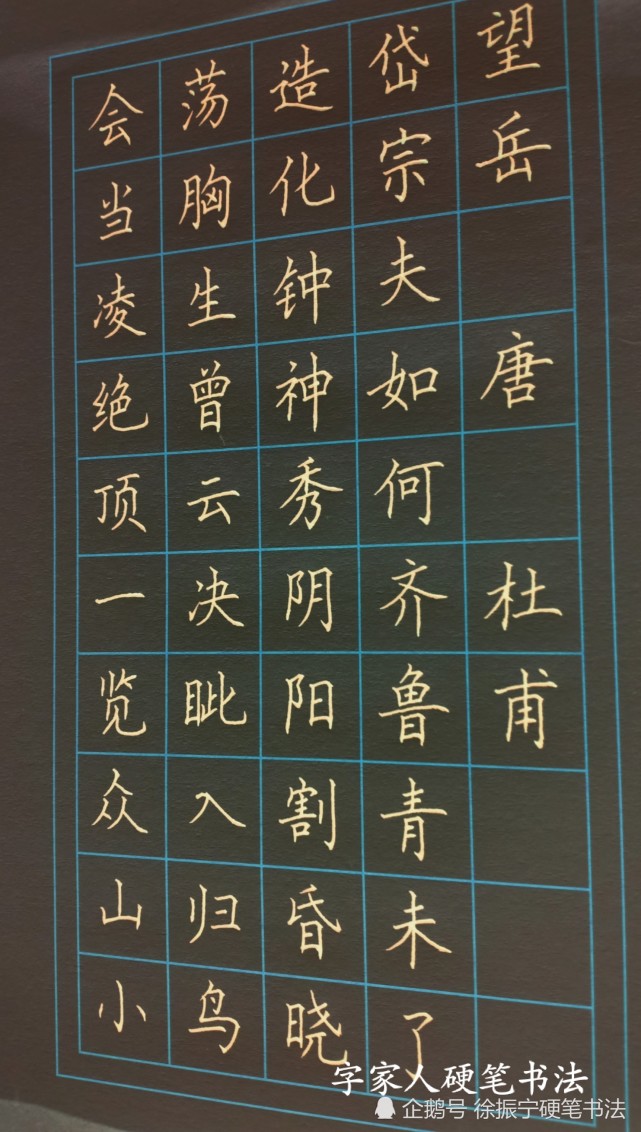 望岳 唐 杜甫
岱宗夫如何齐鲁青未了
造化钟神秀阴阳割昏晓
荡胸生曾云决眦入归鸟
会当凌绝顶一览众山小
字家人硬笔书法
企鹅号 徐振宁硬笔书法